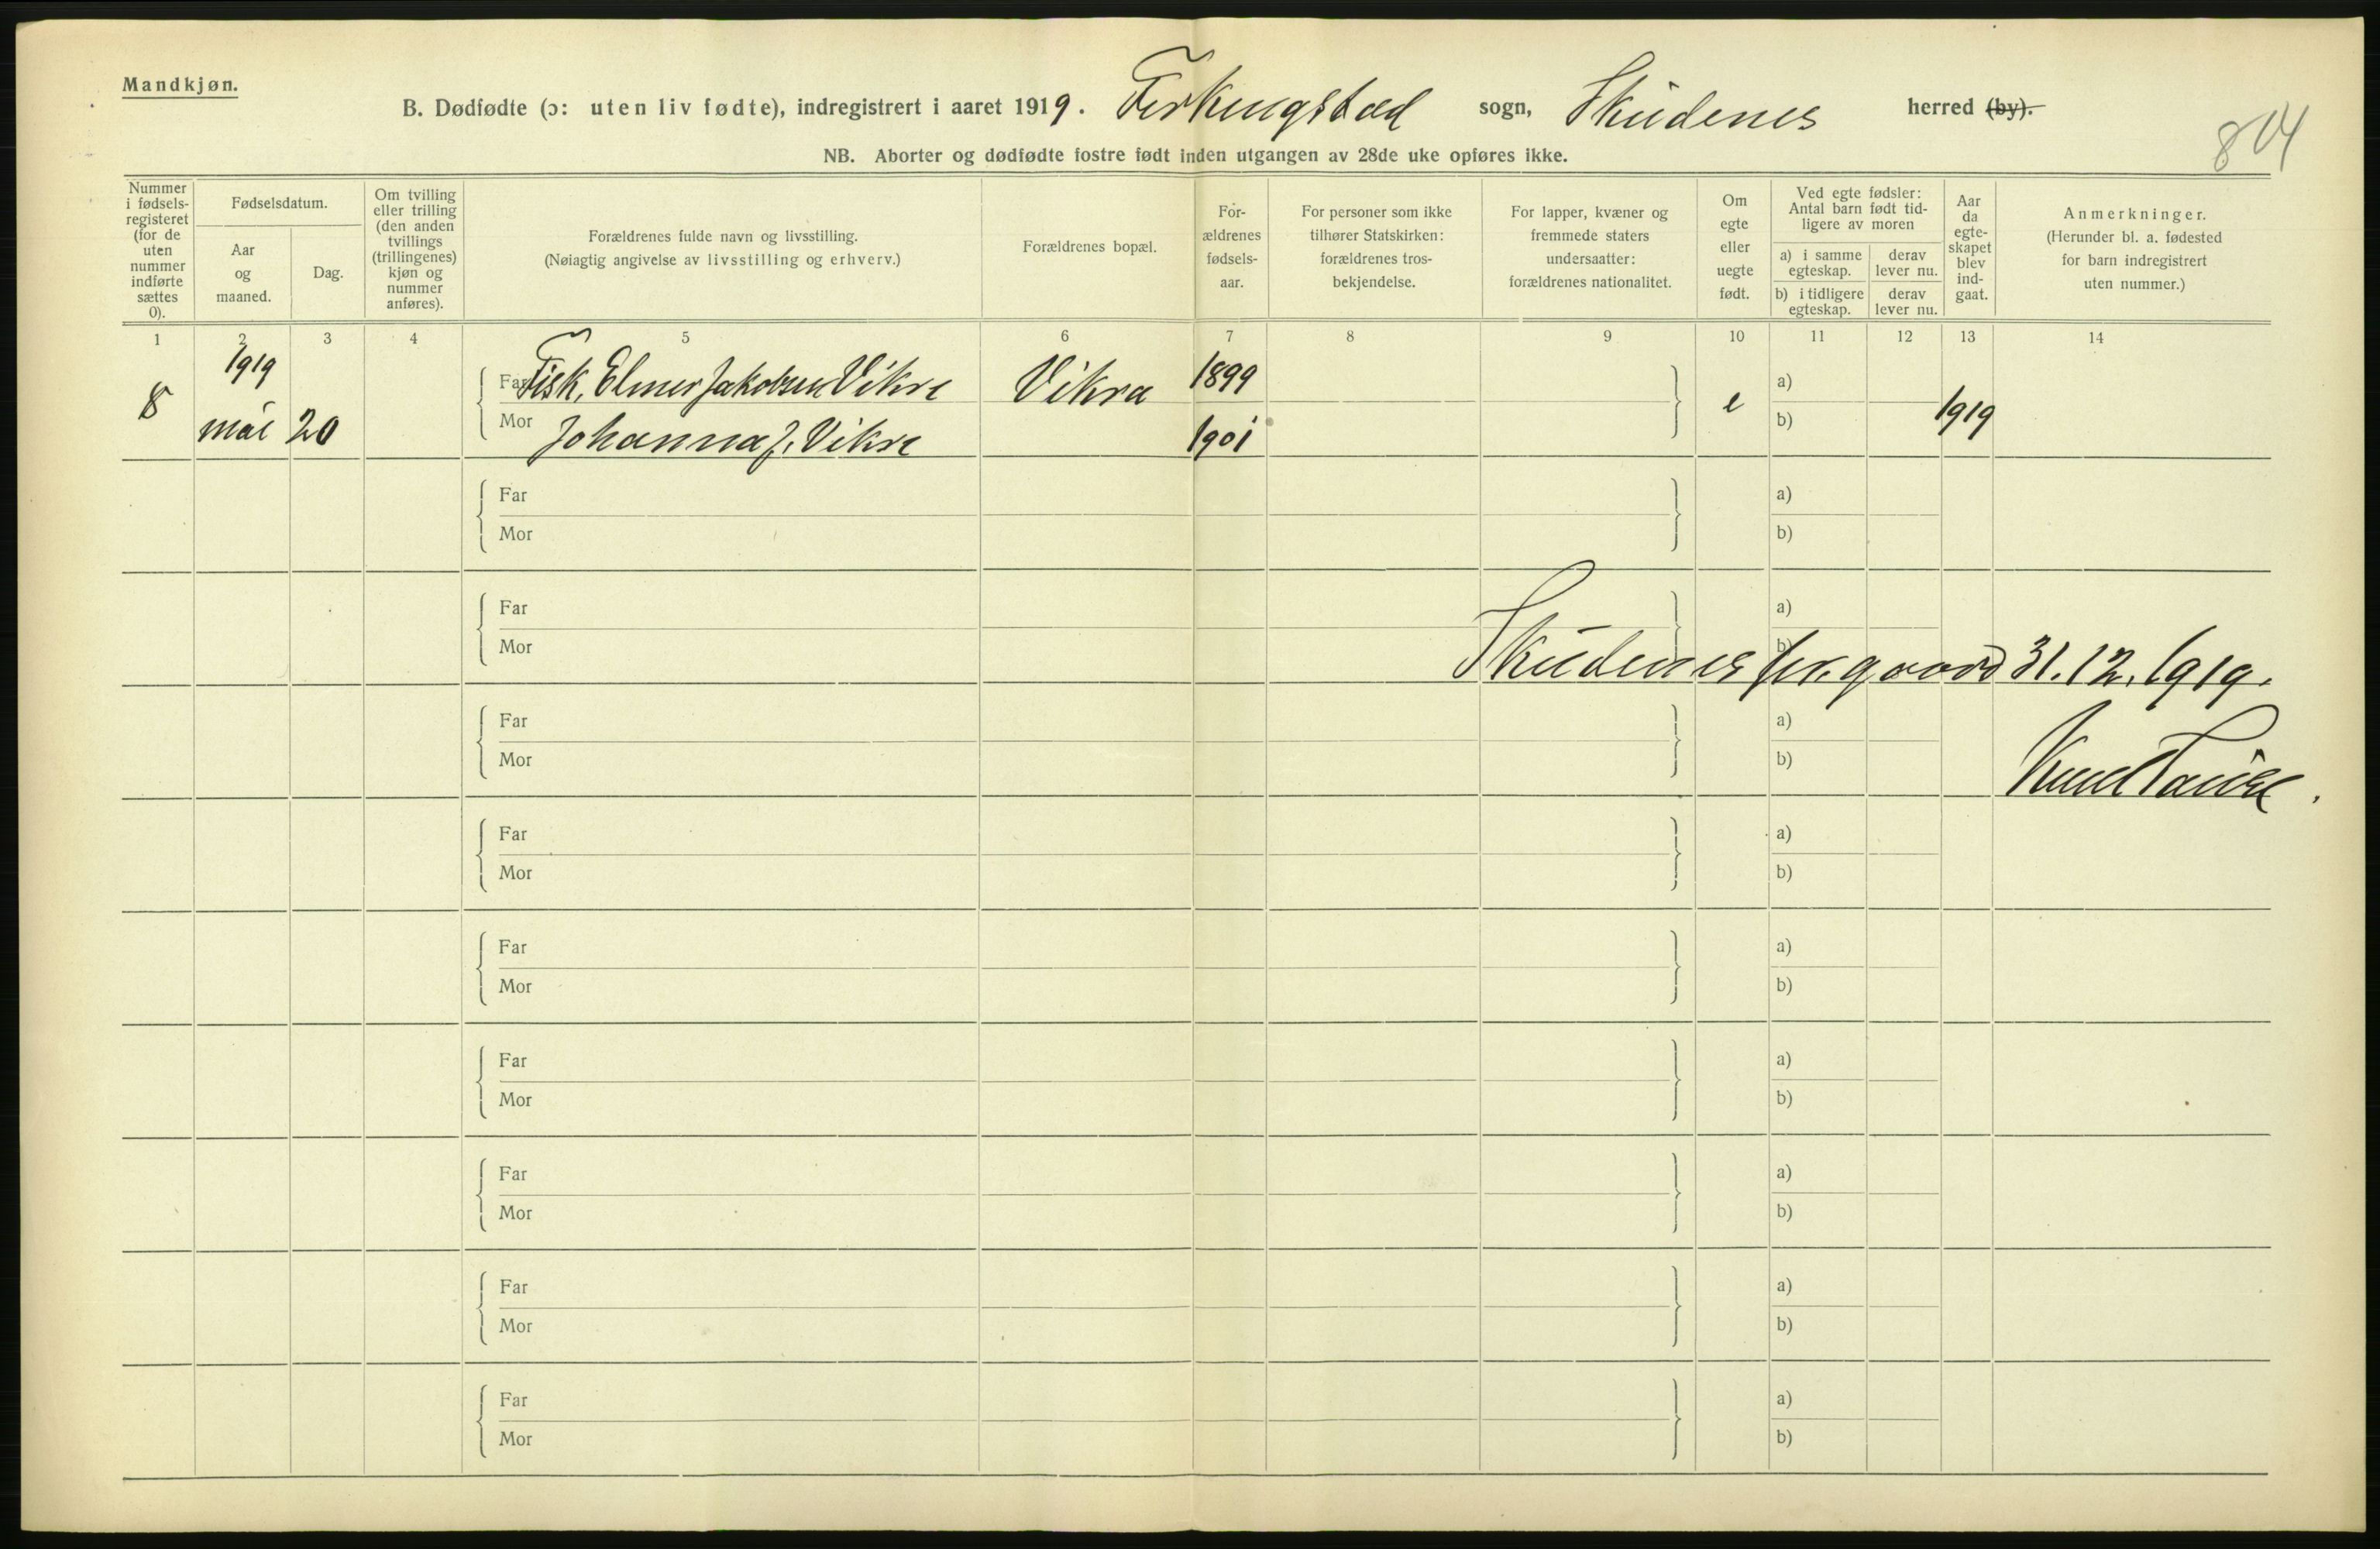 Mandkjøn.
B. Dødfødte (ɔ: uten liv fødte), indregistrert i aaret 1919. Ferkingstad sogn, Skudenes herred (by).
804
NB. Aborter og dødfødte fostre født inden utgangen av 28de uke opføres ikke.
Nummer i fødsels-registeret (for de uten nummer indførte sættes 0).
Fødselsdatum.
Aar og maaned.
Dag.
Om tvilling eller trilling (den anden tvillings (trillingenes) kjøn og nummer anføres).
Forældrenes fulde navn og livsstilling.
(Nøiagtig angivelse av livsstilling og erhverv.)
Forældrenes bopæl.
For-ældrenes fødsels-aar.
For personer som ikke tilhører Statskirken: forældrenes tros-bekjendelse.
For lapper, kvæner og fremmede staters undersaatter: forældrenes nationalitet.
Om egte eller uegte født.
Ved egte fødsler: Antal barn født tid-ligere av moren
a) i samme egteskap.
derav lever nu.
b) i tidligere egteskap.
derav lever nu.
Aar da egte-skapet blev ind-gaat.
Anmerkninger.
(Herunder bl. a. fødested for barn indregistrert uten nummer.)
1 2 3 4 5 6 7 8 9 10 11 12 13 14
8 1919 mai 20 Far Fisk. Elmer Jakobsen Vikre Vikra 1899 e a) 1919
Mor Johanna J. Vikre 1901 b)
Far a)
Mor b)
Far a)
Mor b)
Skudenes pr.gaard 31.12.1919.
Far a)
Mor b)
Knud
Far a)
Mor b)
Far a)
Mor b)
Far a)
Mor b)
Far a)
Mor b)
Far a)
Mor b)
Far a)
Mor b)